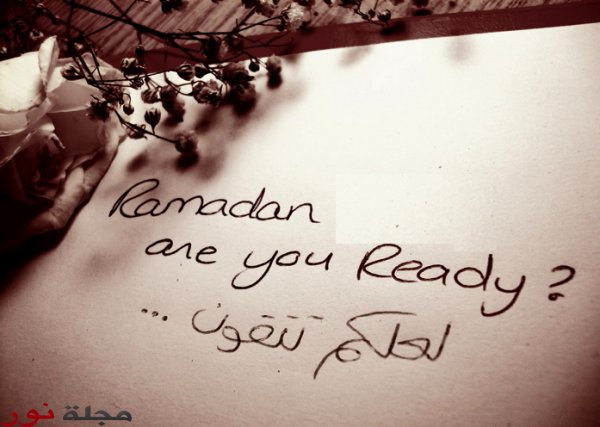 Ramadan
are you Ready?
لعلكم تتقون ...
مجلة نور